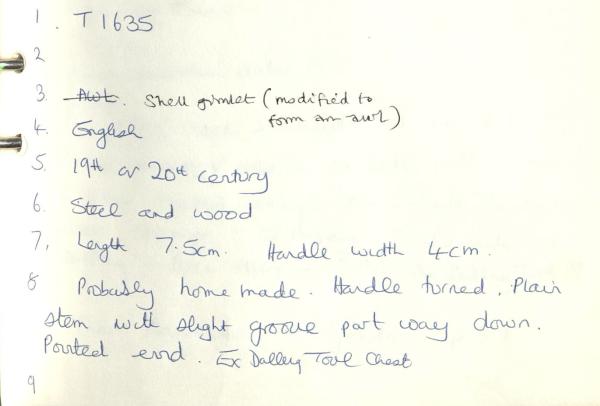 1. T1635
2
3. Awl. Shell gimlet (modified to
form an awl)
4. English
5. 19th or 20th century
6. Steel and wood
7. Length 7.5cm. Handle width 4cm.
8 Probably home made. Handle turned. Plain
stem with slight groove part way down.
Pointed end. Ex Dalley Tool Chest
9